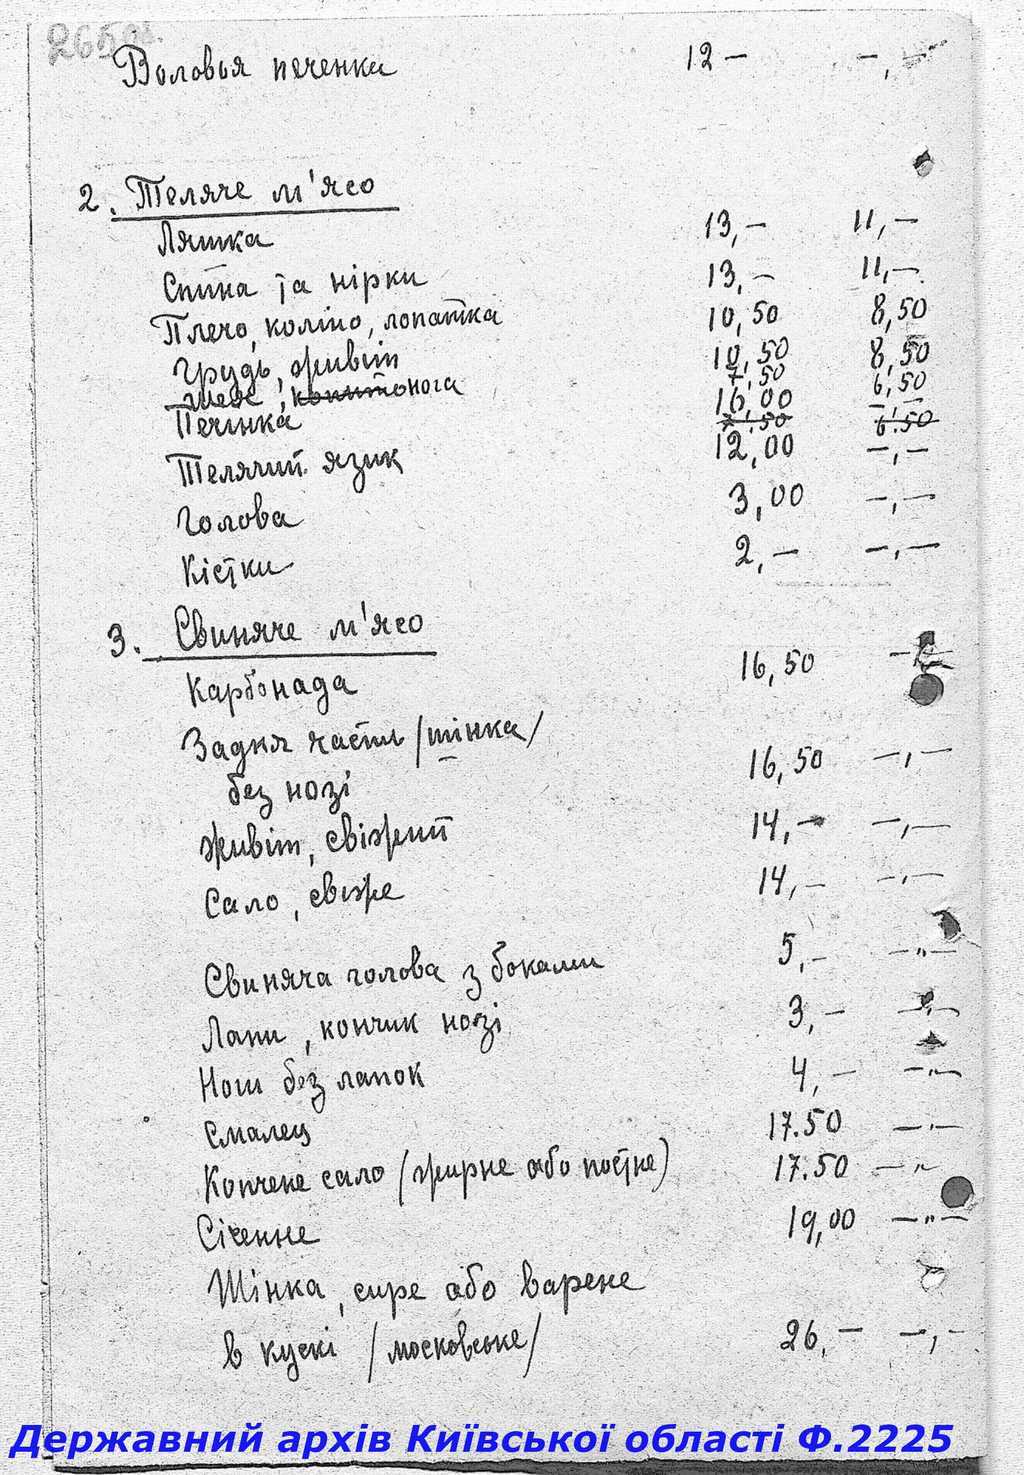 265 об.
Воловья печенка 12 — —,—
2. Теляче м'ясо
Ляшка 13,— 11,—
Спина та нірки 13,— 11,—
Плечо, коліно, лопатка 10,50 8,50
Грудь, живіт 10,50 8,50
нога 7,50 6,50
Печінка 16,00 —,—
7.50 6.50
Телячий язик 12,00 —,—
Голова 3,00 —,—
Кістки 2,— —,—
3. Свиняче м'ясо
Карбонада 16,50 —,—
Задня часть /шінка/
без нозі 16,50 —,—
живіт, свіжий 14,— —,—
Сало, свіже 14,— —,—
Свиняча голова з боками 5,— —„—
Лапи, кончик нозі 3,— —„—
Ноги без лапок 4,— —„—
Смалец 17.50 —„—
Копчене сало (жирне або постне) 17.50 —„—
Січенне 19,00 —„—
Шінка, сире або варене
в кускі /московське/ 26,— —,—
Державний архів Київської області Ф.2225